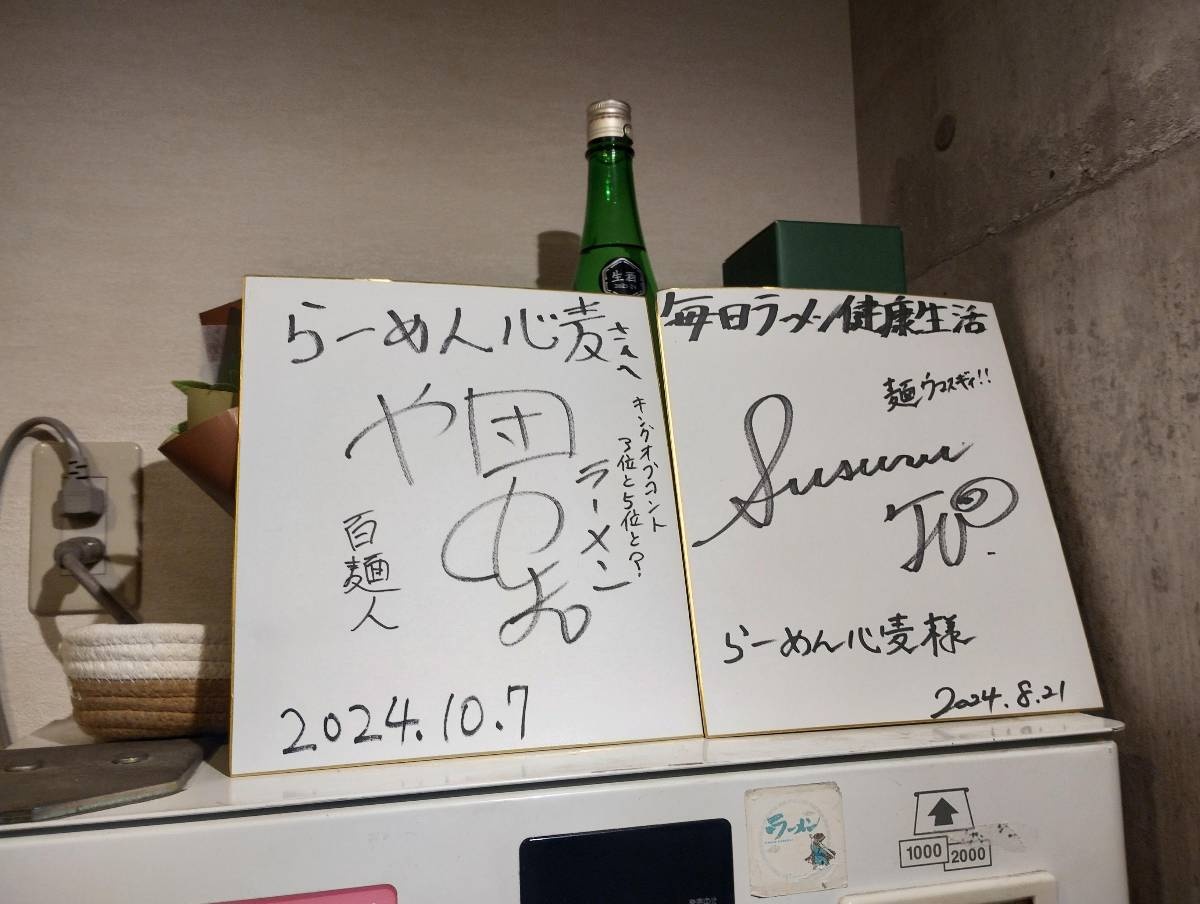 らーめん心麦さんへ
や団
ラーメン
キングオブコント
3位と5位と?
百麺人
2024.10.7
生酒
毎日ラーメン健康生活
麺ウマスギィ!!
Susuru
TV.
らーめん心麦様
2024.8.21
ラーメン
1000
2000